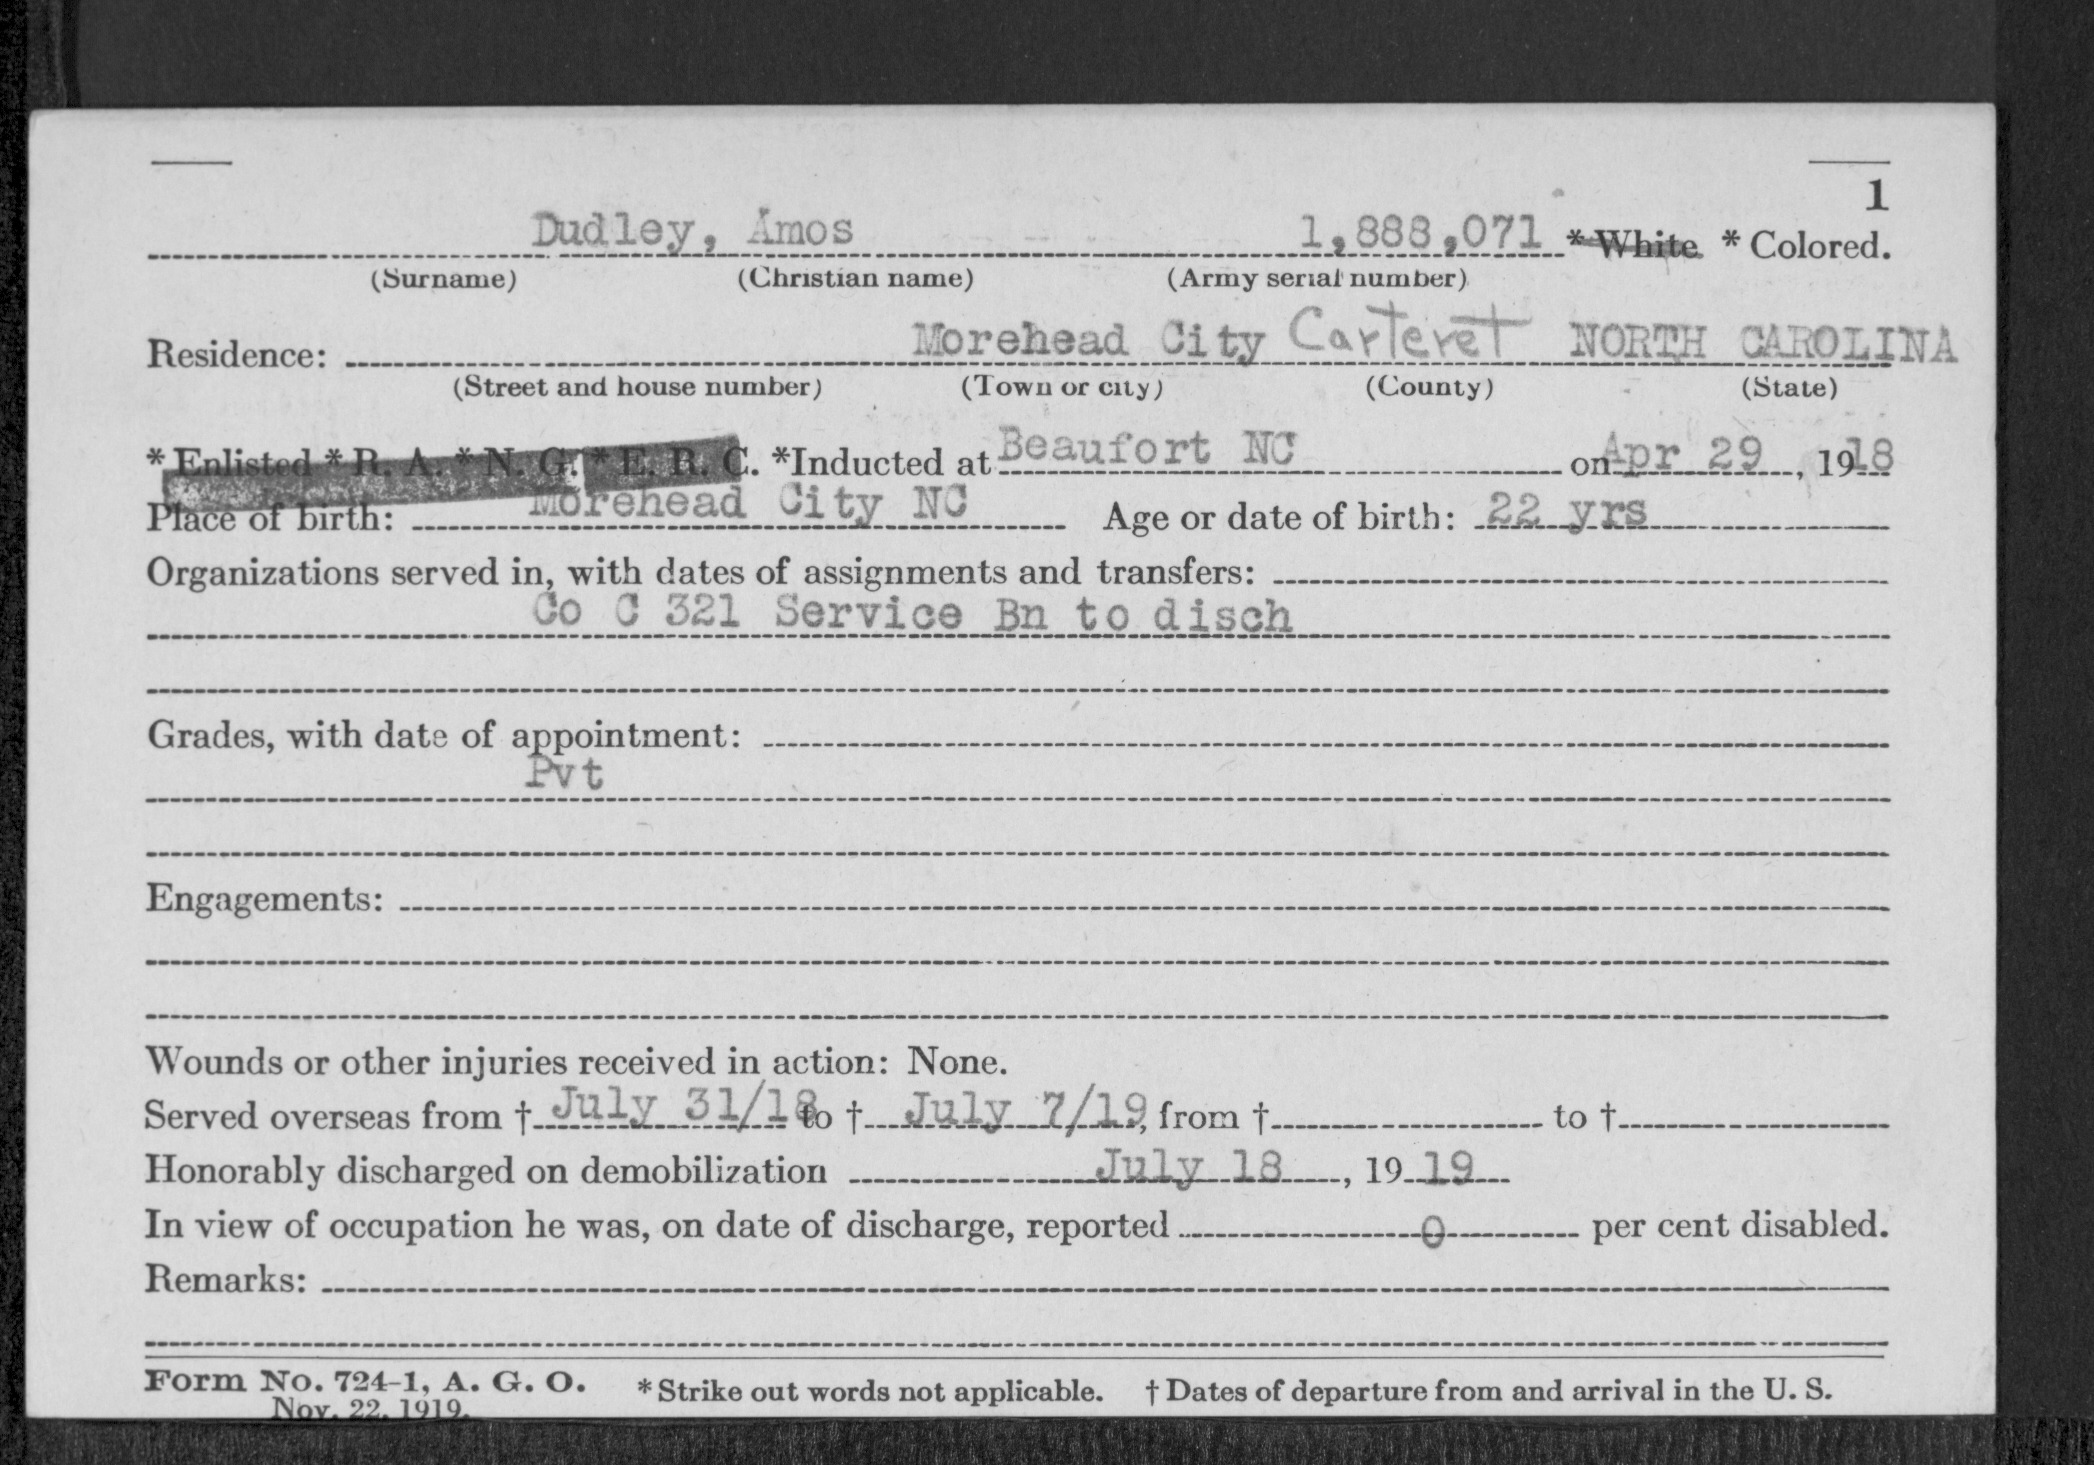 1
Dudley, Amos 1,888,071 * White * Colored.
(Surname) (Christian name) (Army serial number)
Residence: Morehead City Carteret NORTH CAROLINA
(Street and house number) (Town or city) (County) (State)
* Enlisted * R. A. * N. G. * E. R. C. *Inducted at Beaufort NC on Apr 29, 1918
Place of birth: Morehead City NC Age or date of birth: 22 yrs
Organizations served in, with dates of assignments and transfers:
Co C 321 Service Bn to disch
Grades, with date of appointment:
Pvt
Engagements:
Wounds or other injuries received in action: None.
Served overseas from † July 31/18 to † July 7/19, from † to †
Honorably discharged on demobilization July 18, 19 19
In view of occupation he was, on date of discharge, reported 0 per cent disabled.
Remarks:
Form No. 724-1, A. G. O. * Strike out words not applicable. † Dates of departure from and arrival in the U. S.
Nov. 22, 1919.